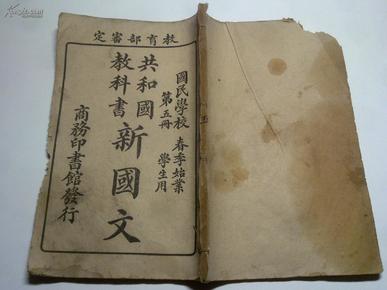 教育部審定
國民學校
春季始業
第五冊
學生用
共和國
教科書
新國文
商務印書館發行